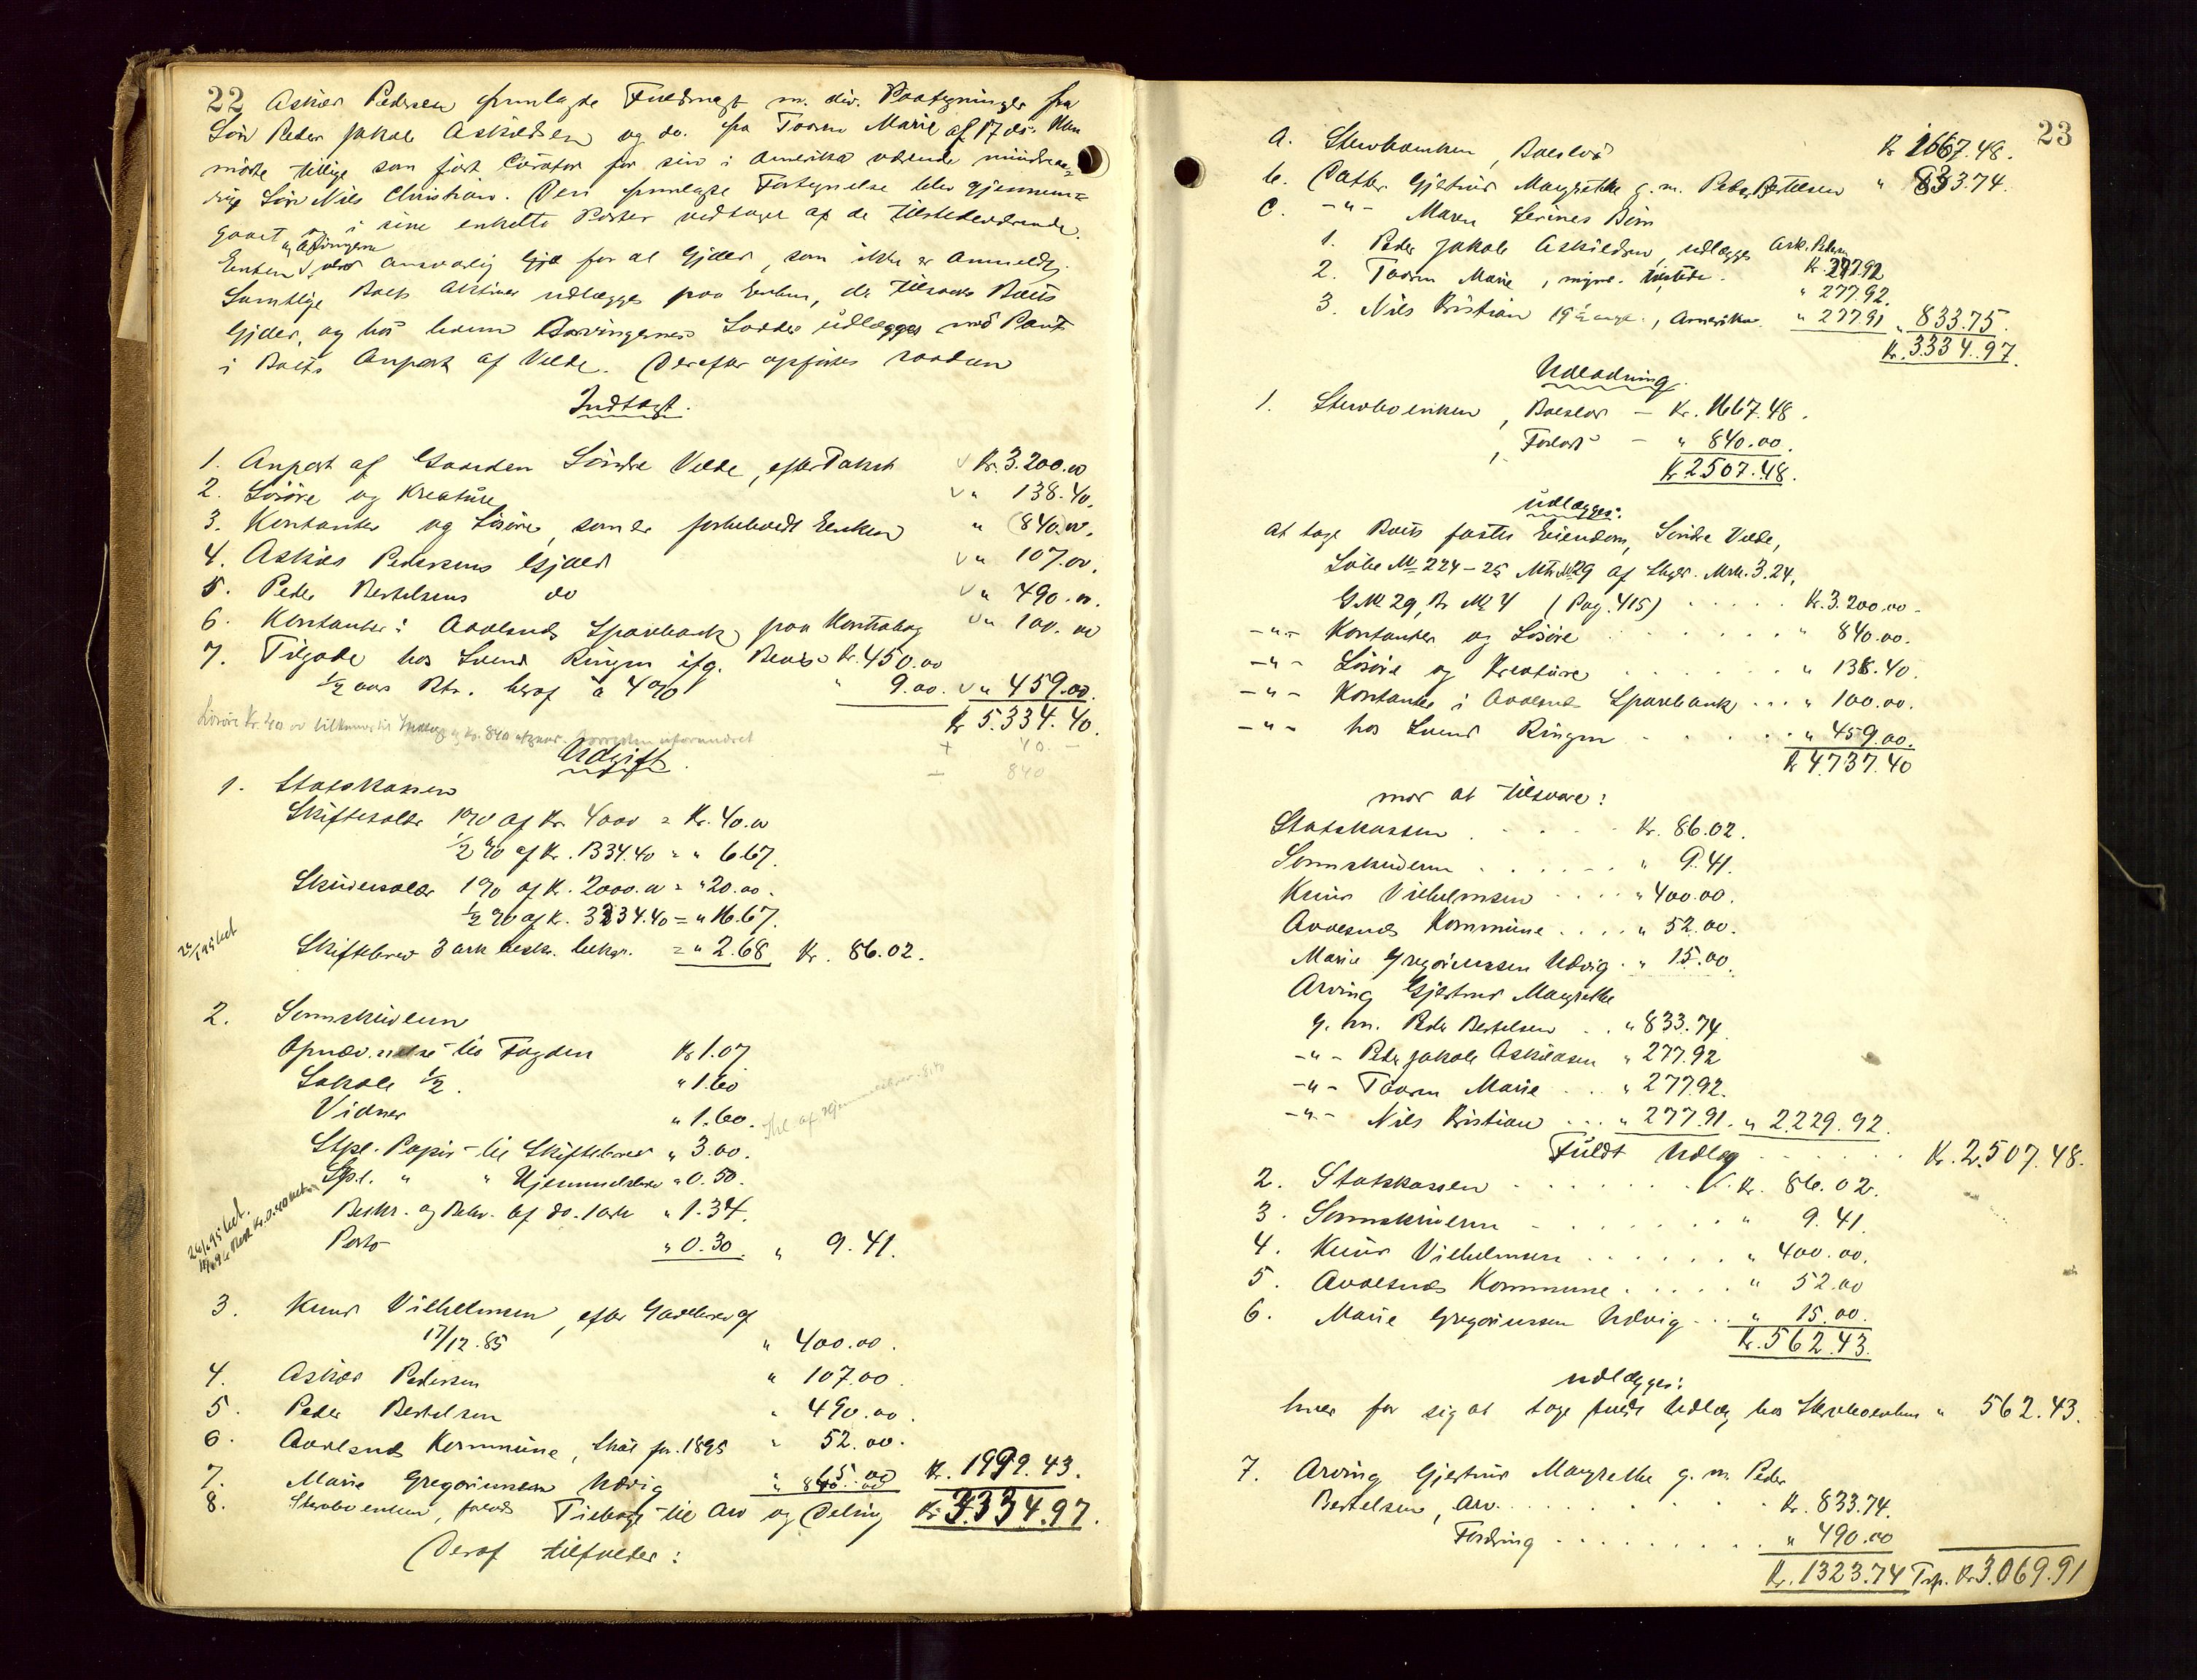 22 Askier Pedersen fremlagte Fuldmagt m. div. Paategninger fra
Søn Peder Jakob Askildsen og do. fra Taarin Marie af 17 ds.
mødte tillige som født Curator for sin i Amerika værende mindreaa-
rige Søn Nils Christian. Den fremlagte Fortegnelse blev gjennem-
gaaet og i sine enkelte Poster vedtaget af de tilstedeværende.
Enken & Arvingerne ansvarlig for al Gjæld, som ikke er anmeldt.
Samtlige Boets Aktiver udlægges paa Enken, der tilsvarer Boets
Gjæld, og hos hvem Arvingernes Lodder udlægges med Pant
i Boets Anpart af Velde. Derefter opgjordes saadan
Indtægt.
1. Anpart af Gaarden Søndre Velde, efter Takst Kr. 3.200.00
2. Løsøre og Kreature " 138.40.
3. Kontanter og Løsøre, som er forbeholdt Enken " (840.00.
4. Askier Pedersens Gjæld " 107.00.
5. Peder Bertelsens do " 490.00.
6. Kontanter: Avalsnæs Sparebank paa Kontrabog " 100.00
7. Tilgode hos Svend Ringen ifg. Bevis Kr. 450.00
1/2 aars Rtr. heraf a 4% " 9.00. " 459.00.
Kr 5.334.40.
Løsøre Kr. 40.00 tilkommer Kr. 840 uforandret
+ 40.-
÷ 840
Udgift.
1. Statskassen
Skiftesalær 1% af Kr. 4000 = Kr. 40.00
1/2 % af Kr. 1334.40 = " 6.67.
Skriversalær 1% af K. 2000.00 = " 20.00.
1/2 % af K. 3334.40 = " 16.67.
Skiftebrev 3 ark beskr. bekgr. = " 2.68 Kr. 86.02.
2. Sorenskriveren
Opnævnelse til Fogden Kr 1.07
Lokale 1/2. " 1.60
Vidner " 1.60.
Stpl. Papir til Skiftebrev " 3.00.
Stpl. " " Hjemmelsbrev " 0.50.
Beskr. og Bekr. af do. 1 ark " 1.34.
Porto " 0.30. " 9.41.
3. Knud Vilhelmsen, efter Gjældsbrev af
17/12.85 " 400.00.
4. Askier Pedersen " 107.00.
5. Peder Bertelsen " 490.00.
6. Avalsnæs Kommune, Skat for 1895 " 52.00.
7. Marie Gregoriussen Udvig " 15.00 Kr. 1999.43.
8. Stervboenken, forlods
Tilbage til Arv og Deling Kr 3334.97.
Deraf tilfalder:
23
a. Stervboenken, Boeslod Kr 1667.48.
b. Datter Gjertrud Margrethe g. m. Peder Bertelsen " 833.74.
c. -"- Maren Serines Børn
1. Peder Jakob Askildsen, udlægges Ask. Pedersen Kr. 277.92
2. Taarin Marie, myndig, tilstede. " 277.92.
3. Nils Kristian 19 1/2 aar, Amerika " 277.91 " 833.75.
Kr. 3334.97.
Udlodning.
1. Stervboenken, Boeslod - Kr. 1667.48.
, Forlods - " 840.00.
Kr 2507.48.
udlægges:
at tage Boets faste Eiendom, Søndre Velde,
Løbe No 224-25 Mtr. No 29 af Skyld Mrk. 3.24,
G.No 29, Br No 4 (Pag. 415) Kr. 3.200.00.
-"- Kontanter og Løsøre " 840.00.
-"- Løsøre og Kreature " 138.40.
-"- Kontanter i Avalsnæs Sparebank " 100.00.
-"- hos Svend Ringen " 459.00.
Kr 4.737.40
mod at tilsvare:
Statskassen Kr. 86.02.
Sorenskriveren " 9.41.
Knud Vilhelmsen " 400.00.
Avalsnæs Kommune " 52.00.
Marie Gregoriussen Udvig " 15.00.
Arving Gjertrud Margrethe
g. m. Peder Bertelsen " 833.74
-"- Peder Jakob Askildsen " 277.92
-"- Taarin Marie " 277.92.
-"- Nils Kristian " 277.91. " 2.229.92.
Fuldt Udlæg Kr. 2.507.48.
2. Statskassen Kr. 86.02.
3. Sorenskriveren " 9.41.
4. Knud Vilhelmsen " 400.00.
5. Avalsnæs Kommune " 52.00
6. Marie Gregoriussen Udvig " 15.00.
Kr. 562.43.
udlægges:
hver for sig at tage fuldt Udlæg hos Stervboenken " 562.43.
7. Arving Gjertrud Margrethe g. m. Peder
Bertelsen, Arv. Kr. 833.74.
Fordring " 490.00
Kr. 1323.74 Trsp. Kr 3.069.91